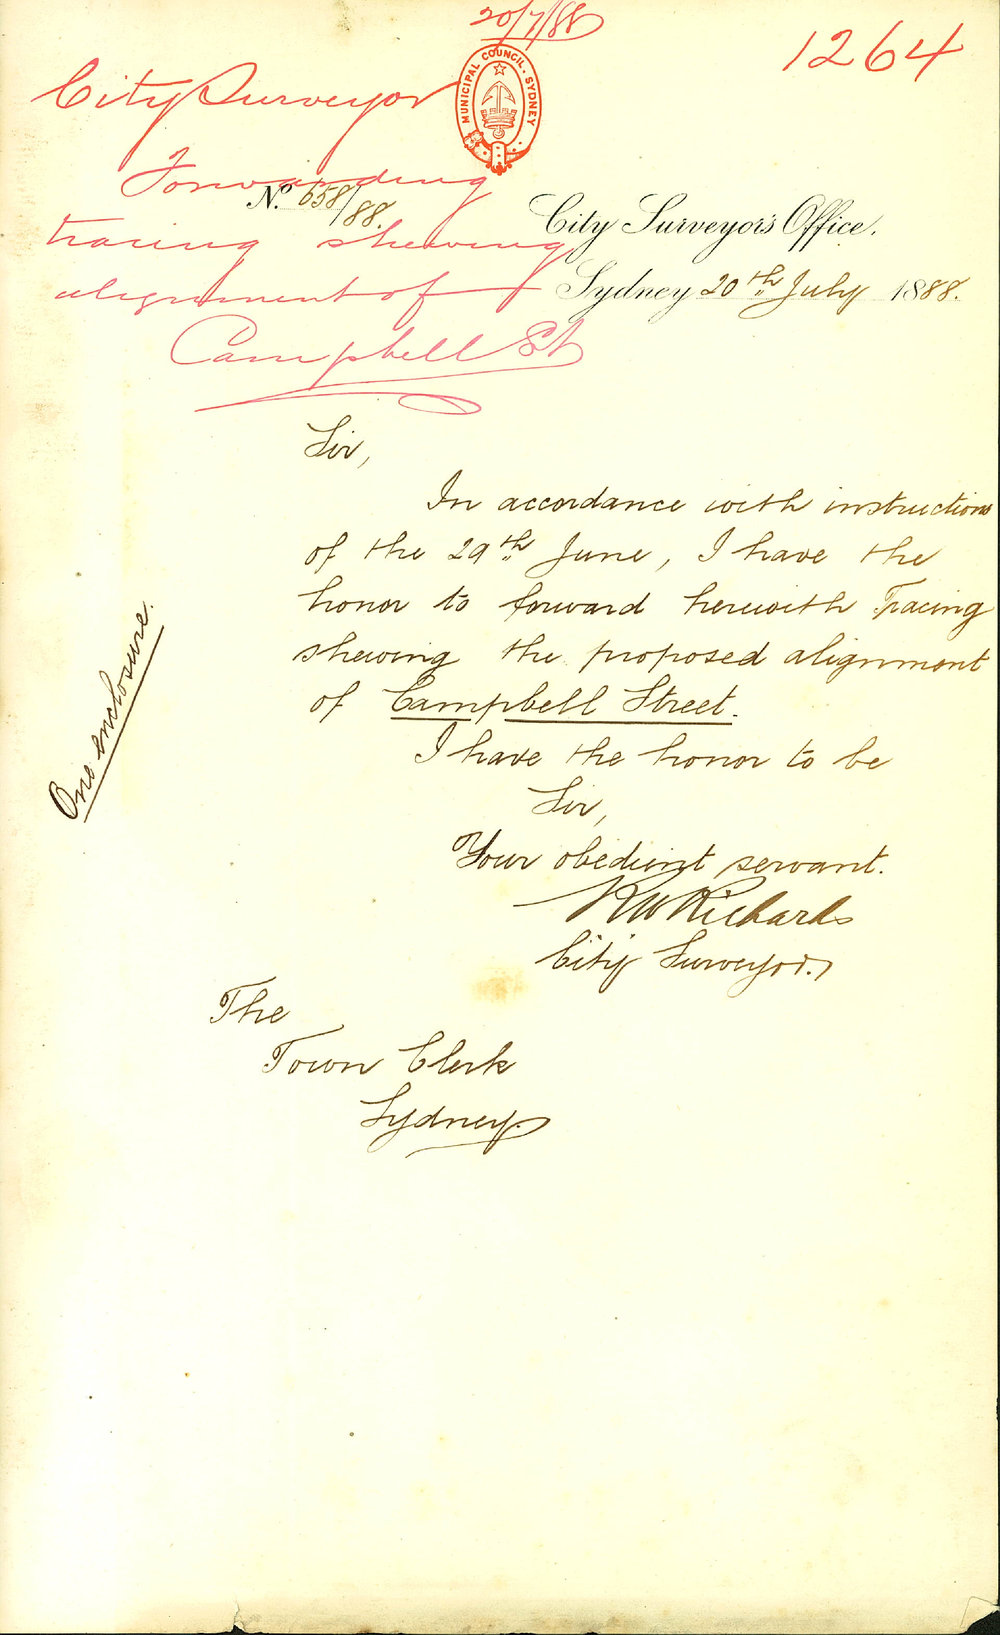 20/7/88
1264
City Surveyor
MUNICIPAL COUNCIL. SYDNEY
Forwarding
No. 658/88.
tracing shewing
City Surveyor's Office.
alignment of
Sydney 20th July 1888.
Campbell St
Sir,
In accordance with instructions
of the 29th June, I have the
honor to forward herewith Tracing
shewing the proposed alignment
of Campbell Street.
I have the honor to be
Sir,
Your obedient servant.
RW Richards
City Surveyor.
One enclosure.
The
Town Clerk
Sydney.